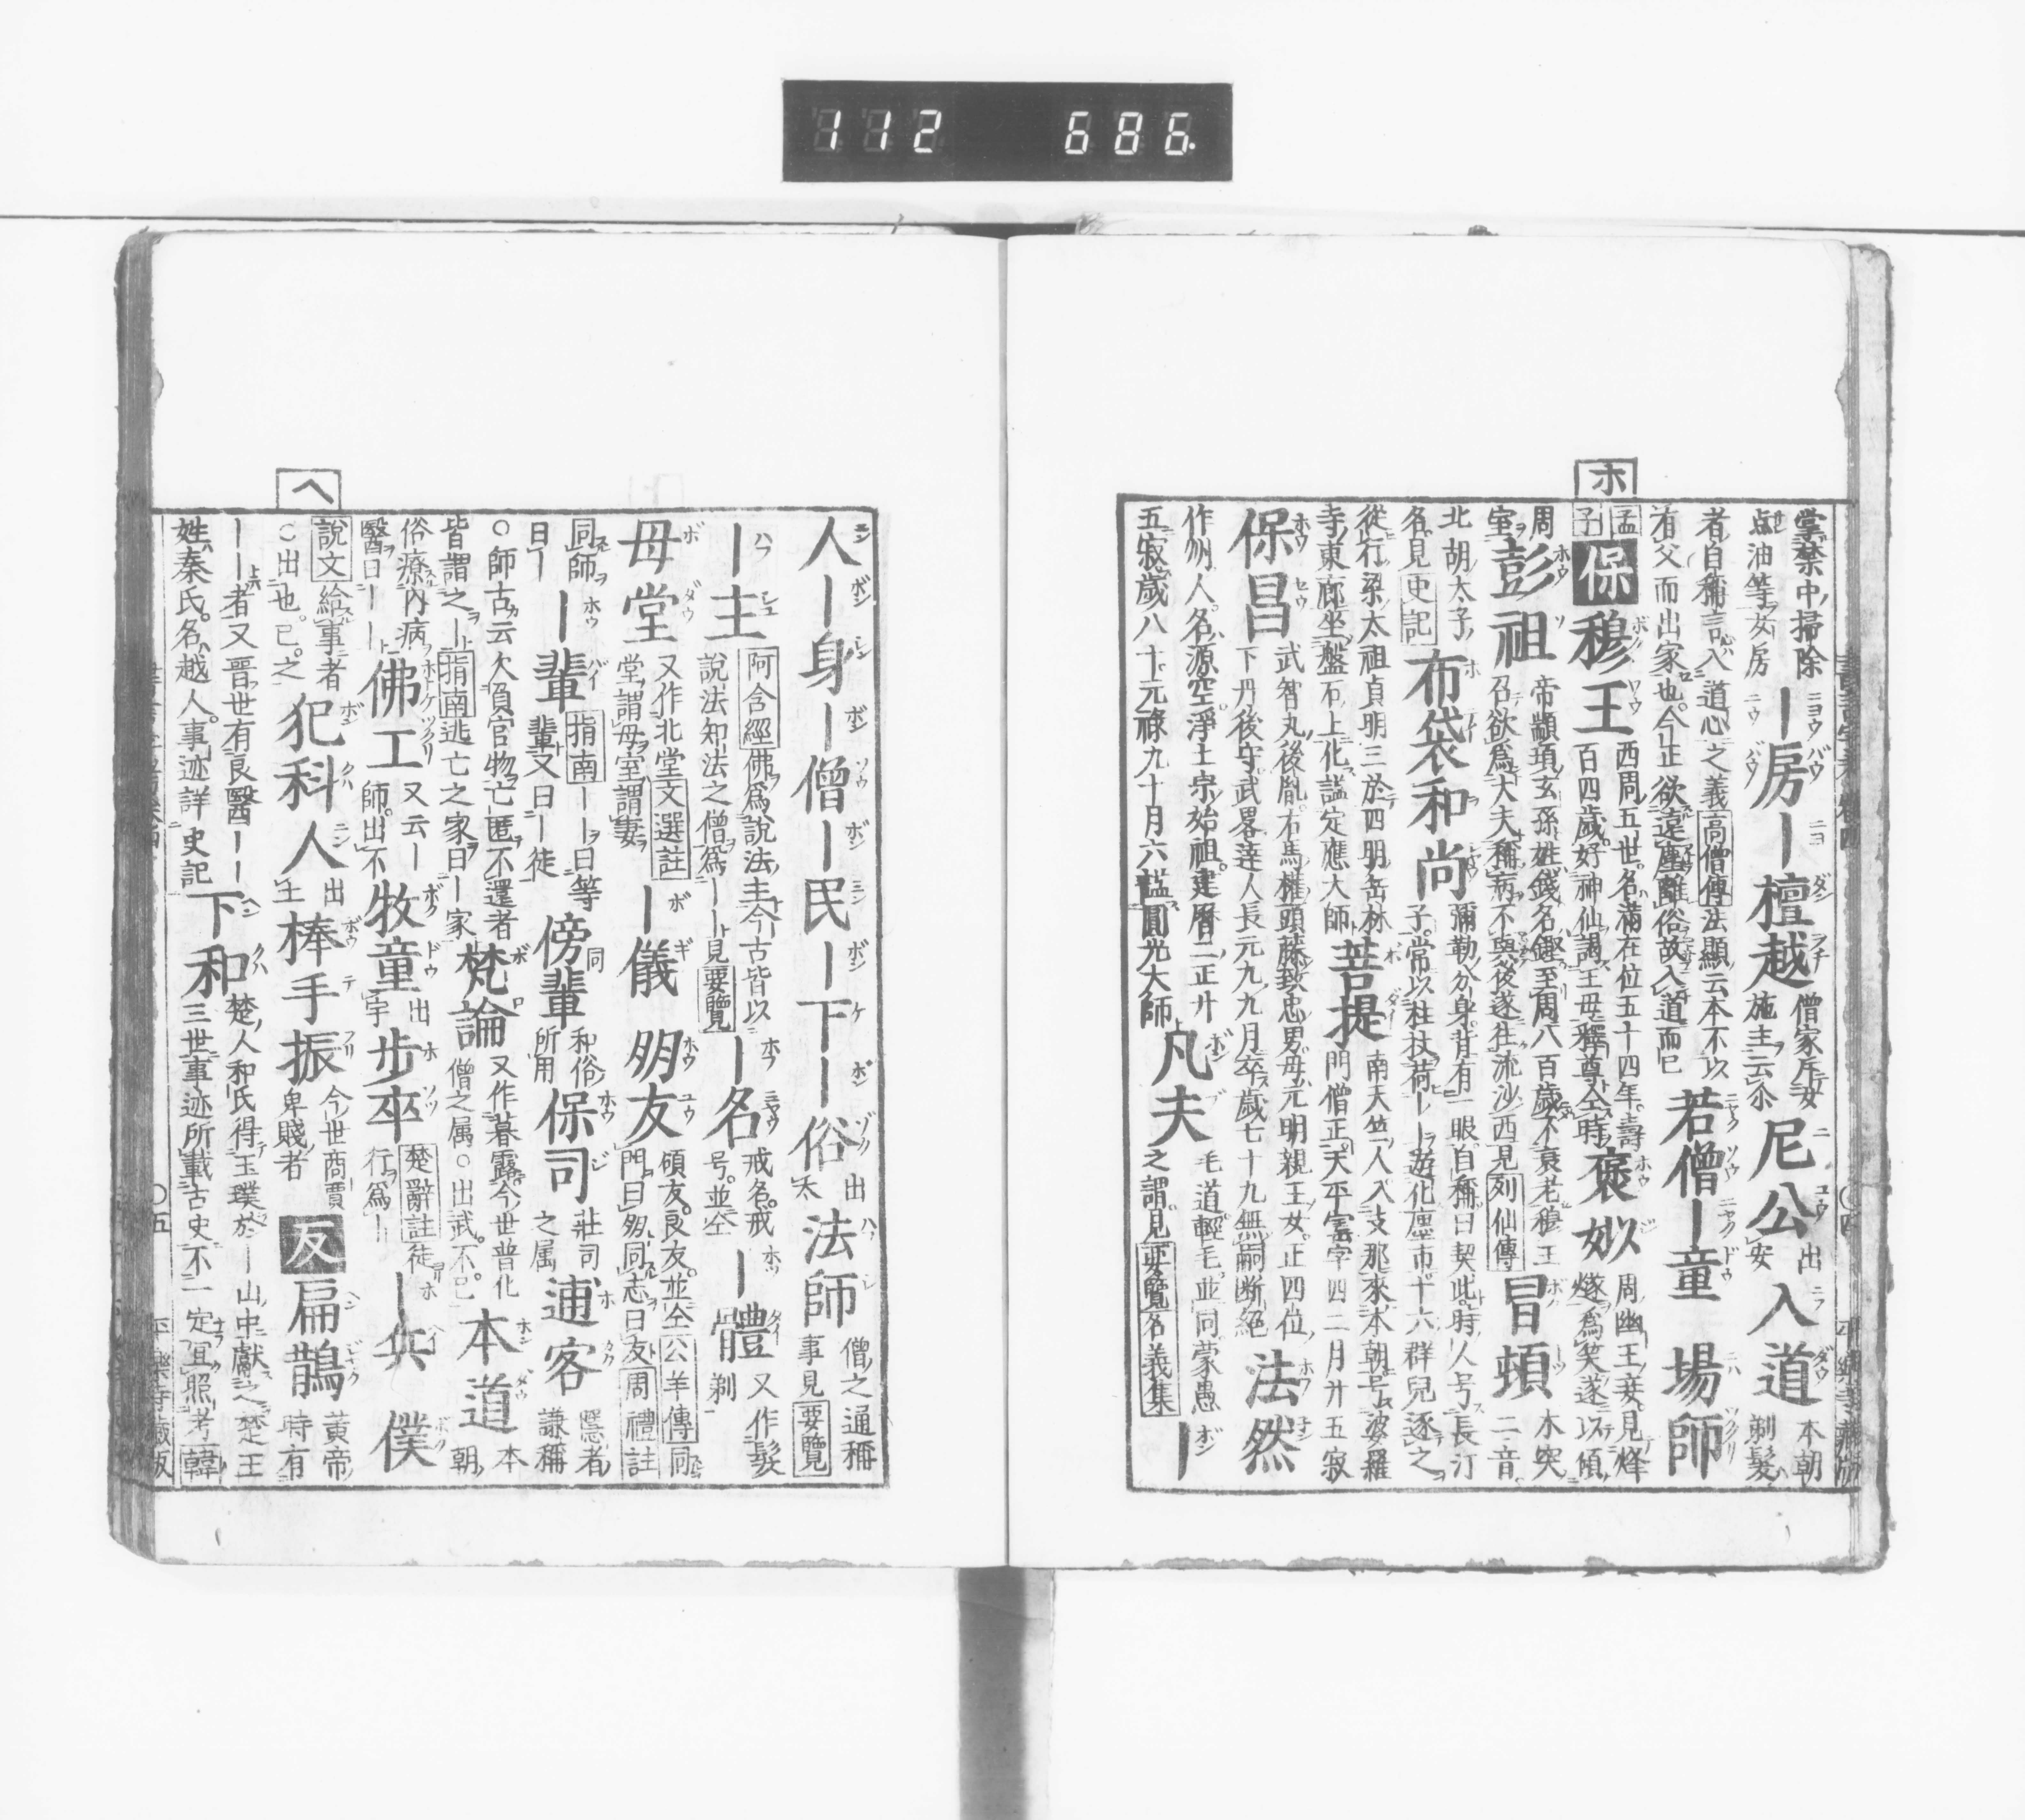 112 686
ホ
掌禁中掃除
点油等女房
―房―檀越
僧家斥女
施主云尒
尼公
出
安
入道
本朝
剃髮
者自稱言入道心之義高僧傳法顯云本不以
有父而出家也今正欲遠塵離俗故入道而已
若僧―童
場師
孟
子
保
穆王
西周五世名滿在位五十四年壽
百四歲好神仙謁王母釋尊仝時
褒姒
周幽王妾見烽
燧爲笑遂以傾
周
室
彭祖
帝顓頊玄孫姓錢名鏗至周八百歲不衰老穆王
召欲爲大夫稱病不與後遂往流沙西見列仙傳
冒頓
木突
二音
北胡太子
名見史記
布袋和尚
彌勒分身背有一眼自稱曰契此時人号長汀
子常以柱扙荷――遊化廛市十六群兒逐之
從行梁太祖貞明三於四明岳林
寺東廊坐盤石上化諡定應大師
菩提
南天竺人入支那來本朝号波羅
門僧正天平宝字四二月廾五寂
保昌
武智丸後胤右馬權頭藤致忠男母元明親王女正四位
下丹後守武畧達人長元九九月卒歲七十九無嗣断絕
法然
作州人名源空淨土宗始祖建曆二正廾
五寂歲八十元祿九十月六諡圓光大師
凡夫
毛道輕毛並同蒙愚
之謂見要覽名義集
―
人―身―僧―民―下―俗
出
太
法師
僧之通稱
事見要覽
―主
阿含經佛爲說法主今古皆以
說法知法之僧爲――見要覽
―名
戒名戒
号並仝
―體
又作髮
剃
母堂
又作北堂文選註
堂謂母室謂妻
―儀
朋友
碩友良友並仝公羊傳同
門曰朋同志曰友周禮註
同師
曰―
―輩
指南――曰等
輩又曰―徒
傍輩
和俗
所用
保司
莊司
之属
逋客
隱者
謙稱
○師古云欠負官物亡匿不還者
皆謂之―指南逃亡之家曰―家
梵論
又作暮露今世普化
僧之属○出武不已
本道
本
朝
俗療内病
醫曰――
佛工
又云―
師出不
牧童
出
宇
步卒
楚辭註徒
行爲―
―兵
僕
說文給事者
○出也已之
犯科人
出
土
棒手振
今世商賈
卑賤者
ヘ
反
扁鵲
黄帝
時有
――者又晋世有良醫――
姓秦氏名越人事迹詳史記
卞和
楚人和氏得玉璞於―山中獻之楚王
三世事迹所載古史不一定冝照考韓
○五